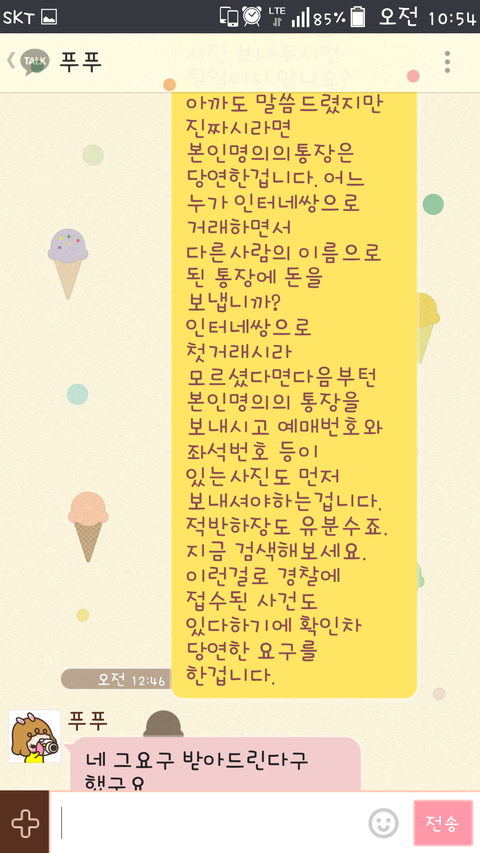 SKT LTE 85% 오전 10:54
TALK 푸푸
사진 보내주시면
아까도 말씀드렸지만
진짜시라면
본인명의의통장은
당연한겁니다. 어느
누가 인터네쌍으로
거래하면서
다른사람의 이름으로
된 통장에 돈을
보냅니까?
인터네쌍으로
첫거래시라
모르셨다면다음부턴
본인명의의 통장을
보내시고 예매번호와
좌석번호 등이
있는사진도 먼저
보내셔야하는겁니다.
적반하장도 유분수죠.
지금 검색해보세요.
이런걸로 경찰에
접수된 사건도
있다하기에 확인차
당연한 요구를
한겁니다.
오전 12:46
푸푸
네 그요구 받아드린다구
했구요
전송